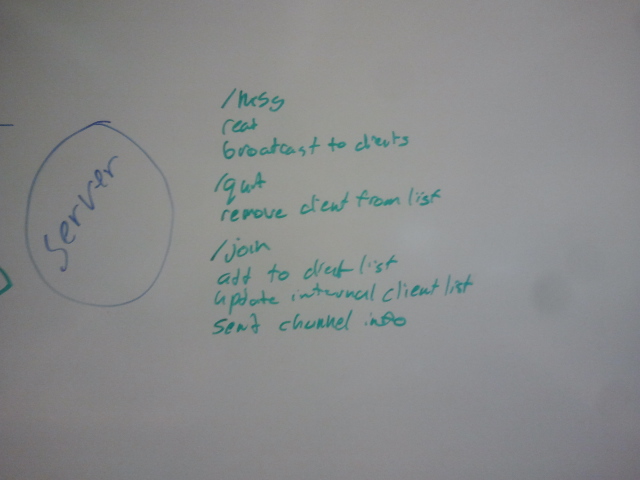 Server
/msg
read
broadcast to clients
/quit
remove client from list
/join
add to client list
update internal client list
send channel info